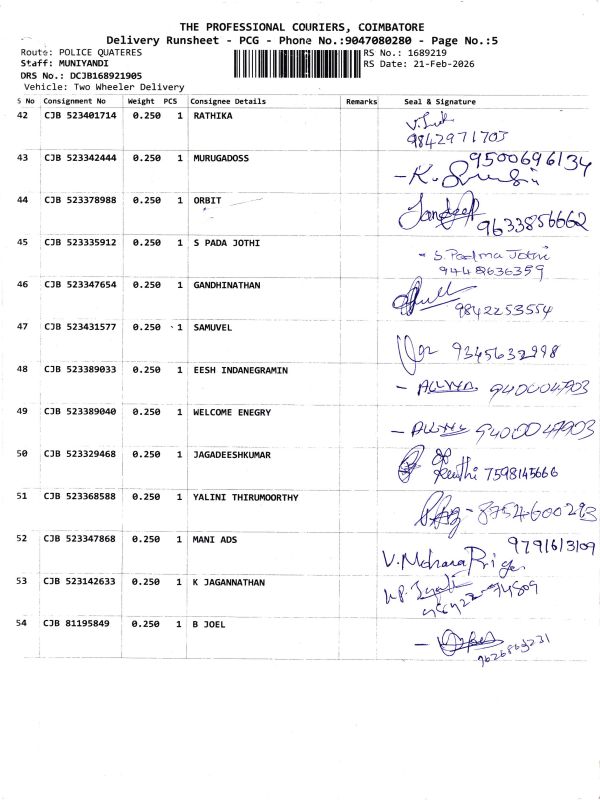 THE PROFESSIONAL COURIERS, COIMBATORE
Delivery Runsheet - PCG - Phone No.:9047080280 - Page No.:5
Route: POLICE QUATERES RS No.: 1689219
Staff: MUNIYANDI RS Date: 21-Feb-2026
DRS No.: DCJB168921905
Vehicle: Two Wheeler Delivery
S No Consignment No Weight PCS Consignee Details Remarks Seal & Signature
42 CJB 523401714 0.250 1 RATHIKA
9842971705
43 CJB 523342444 0.250 1 MURUGADOSS 9500696134
44 CJB 523378988 0.250 1 ORBIT
9633856662
45 CJB 523335912 0.250 1 S PADA JOTHI
S. Padma Jothi
9448636359
46 CJB 523347654 0.250 1 GANDHINATHAN
9842253554
47 CJB 523431577 0.250 1 SAMUVEL
9345632998
48 CJB 523389033 0.250 1 EESH INDANEGRAMIN
9400047903
49 CJB 523389040 0.250 1 WELCOME ENEGRY
9400047903
50 CJB 523329468 0.250 1 JAGADEESHKUMAR
7598145666
51 CJB 523368588 0.250 1 YALINI THIRUMOORTHY
8754600293
52 CJB 523347868 0.250 1 MANI ADS
53 CJB 523142633 0.250 1 K JAGANNATHAN
54 CJB 81195849 0.250 1 B JOEL